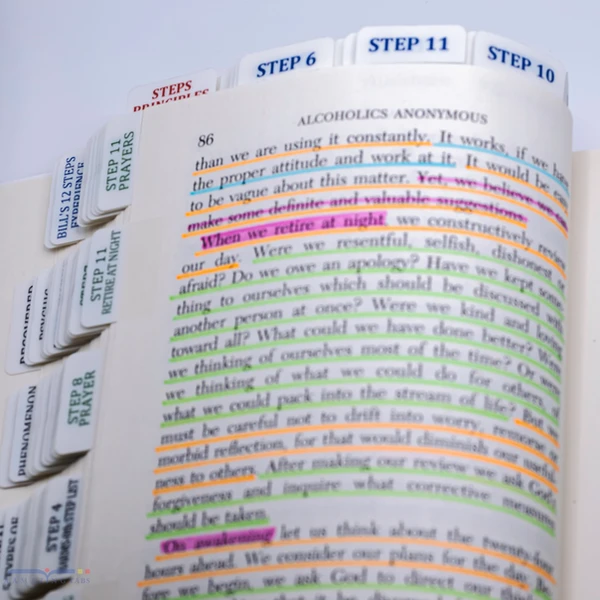 STEPS
PRINCIPLES
STEP 6
STEP 11
STEP 10
BILL'S 12 STEPS
EXPERIENCE
STEP 11
PRAYERS
STEP 11
RETIRE AT NIGHT
PHENOMENON
STEP 8
PRAYER
STEP 4
86
ALCOHOLICS ANONYMOUS
than we are using it constantly. It works, if we have
the proper attitude and work at it. It would be
to be vague about this matter. Yet, we believe we
make some definite and valuable suggestions.
When we retire at night, we constructively review
our day. Were we resentful, selfish, dishonest or
afraid? Do we owe an apology? Have we kept some-
thing to ourselves which should be discussed with
another person at once? Were we kind and loving
toward all? What could we have done better? Were
we thinking of ourselves most of the time? Or were
we thinking of what we could do for others, of
what we could pack into the stream of life? But we
must be careful not to drift into worry, remorse or
morbid reflection, for that would diminish our useful-
ness to others. After making our review we ask God's
forgiveness and inquire what corrective measures
should be taken.
On awakening let us think about the twenty-four
hours ahead. We consider our plans for the day. Be-
fore we begin, we ask God to direct our